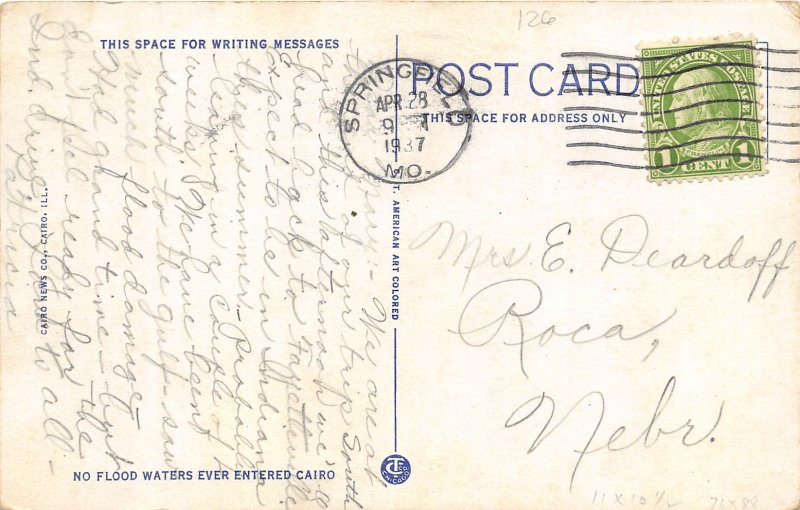 126
THIS SPACE FOR WRITING MESSAGES
POST CARD
THIS SPACE FOR ADDRESS ONLY
SPRINGFIELD
APR 28
9
1937
MO.
UNITED STATES POSTAGE
1 CENT 1
We are at
of our trip South
and this afternoon we'll
head back to Fayetteville
expect to be in Indiana
this summer. Probably
leaving in a couple of
weeks. We have been
south to the gulf - saw
much flood damage.
Had grand time - but
feel ready for the
Ind. drive. Love to all -
Mrs. E. Deardoff
Roca,
Nebr.
CAIRO NEWS CO., CAIRO, ILL.
C.T. AMERICAN ART COLORED
NO FLOOD WATERS EVER ENTERED CAIRO
CT CO CHICAGO
11 X 10 1/2